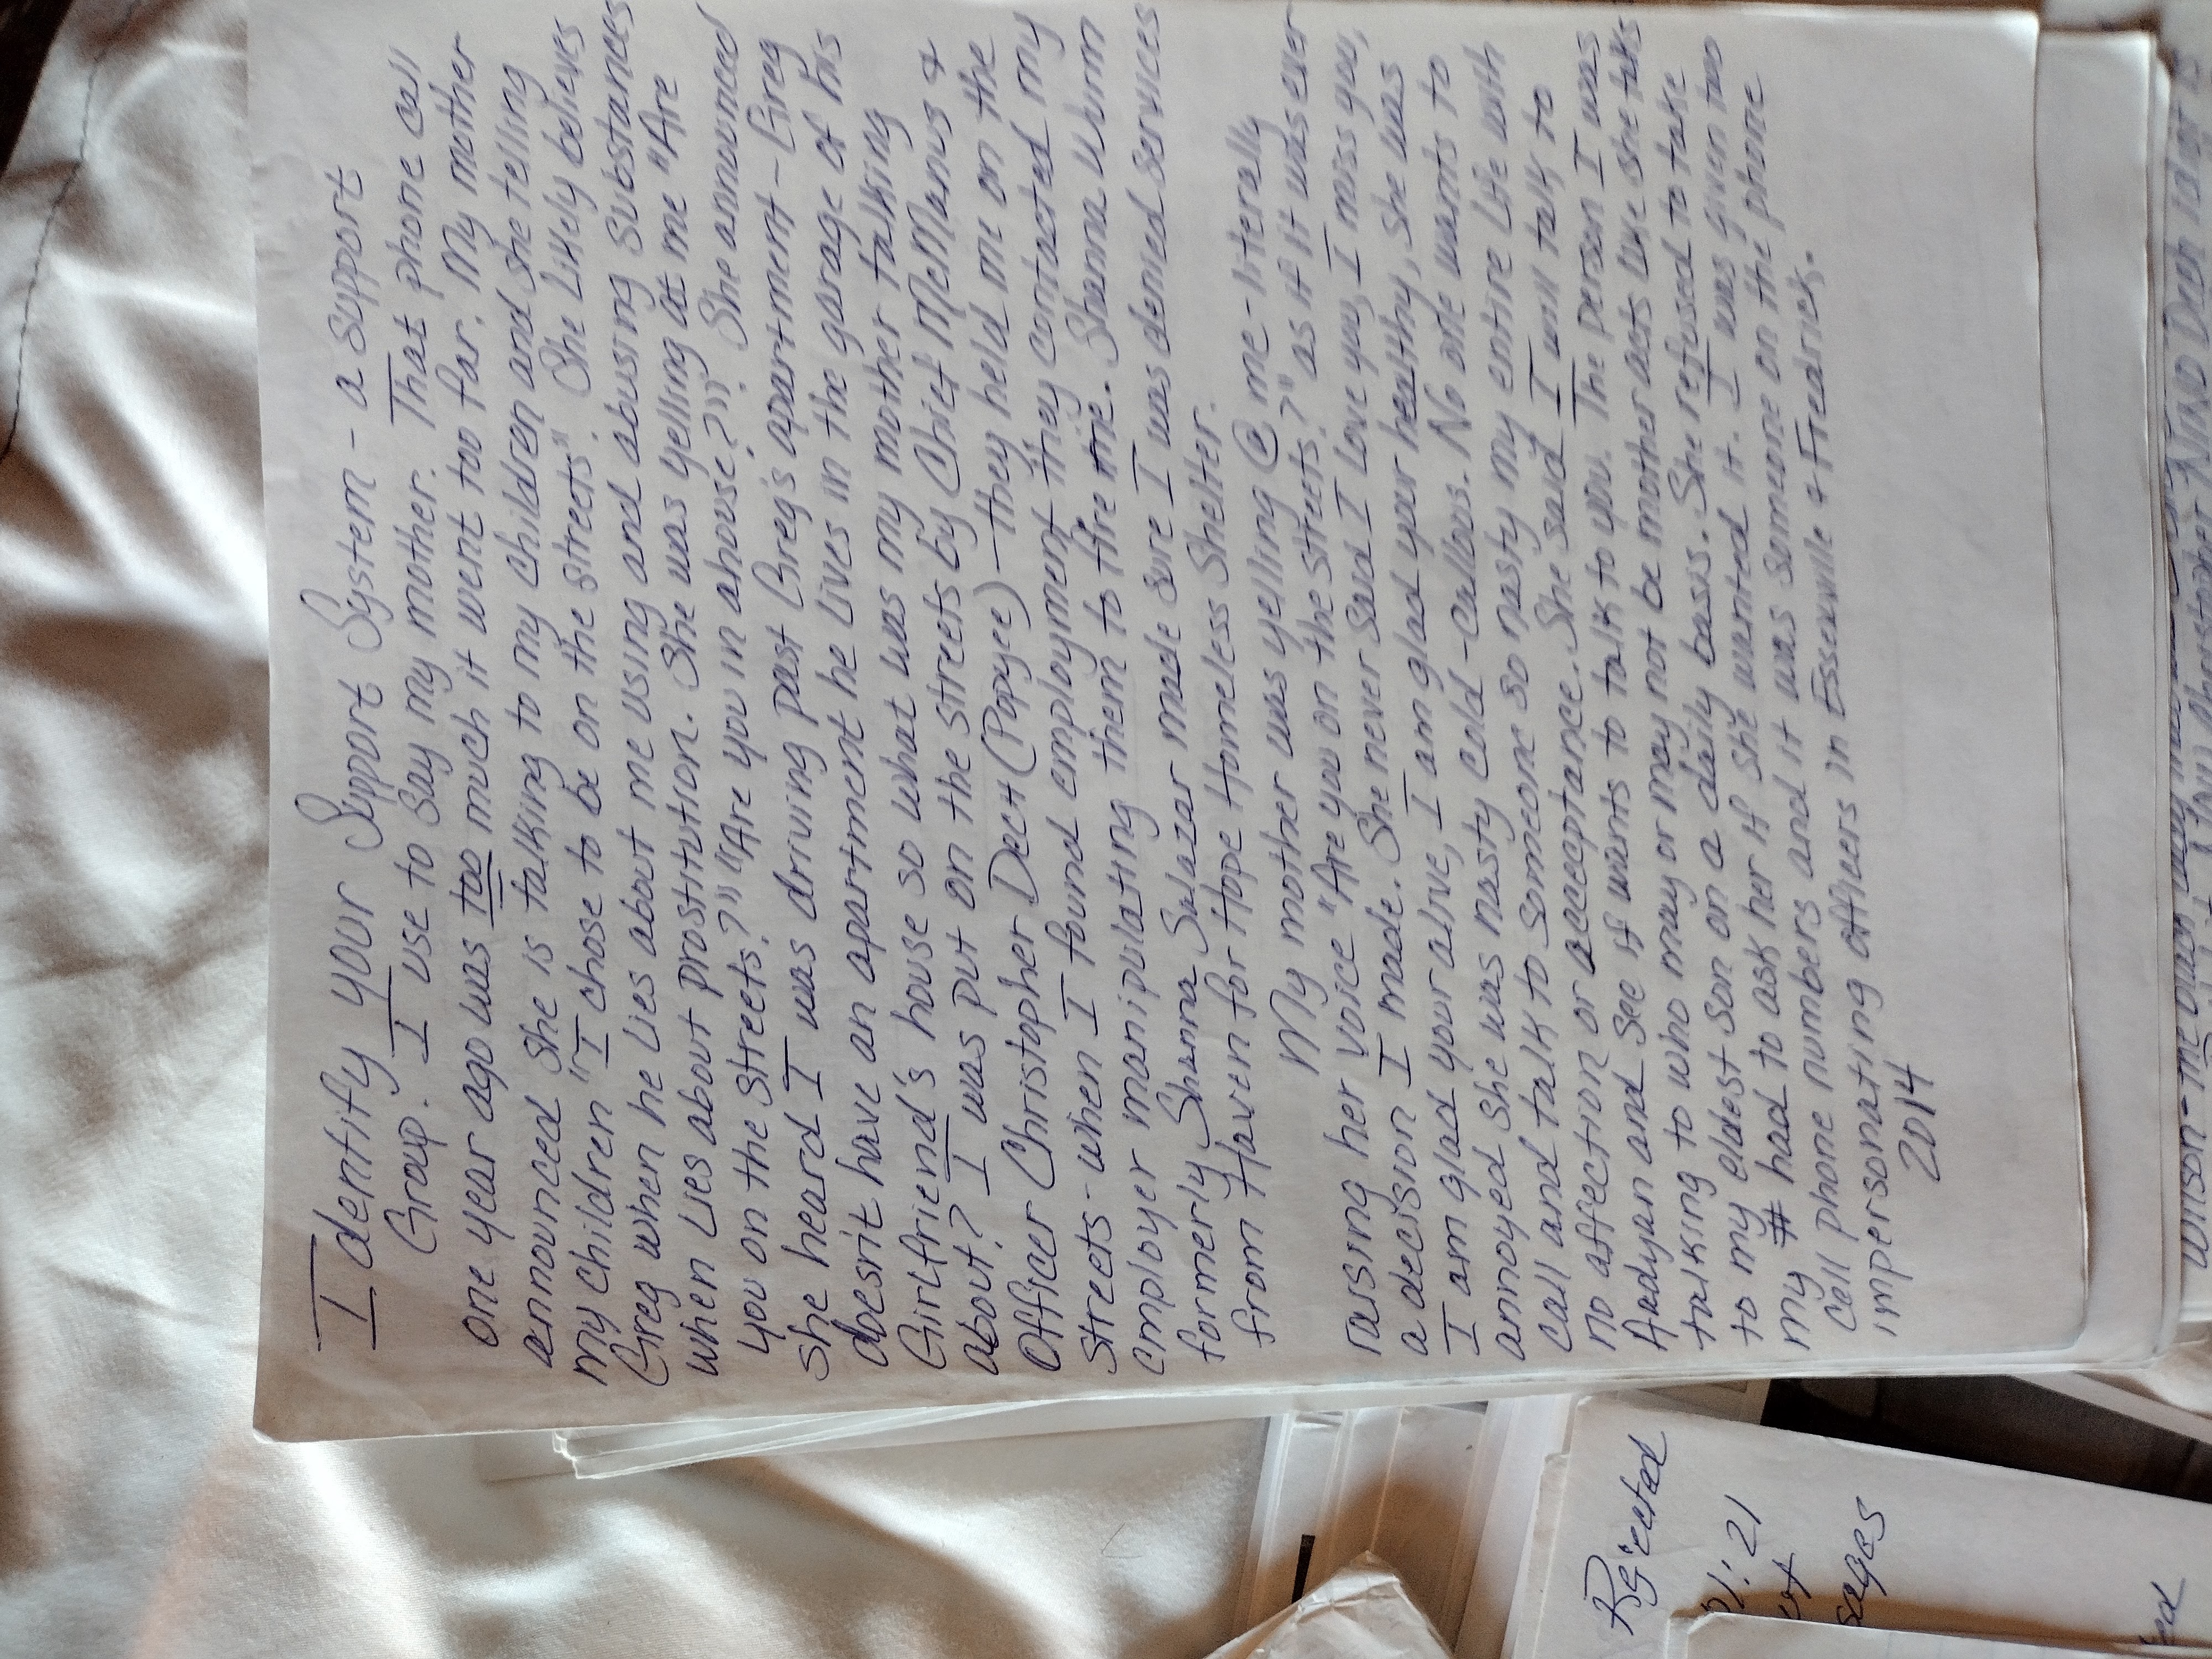 Identify your Support System - a support
Group. I use to say my mother. That phone call
one year ago was too much it went too far. My mother
announced she is talking to my children and she telling
my children "I chose to be on the streets". She likely believes
Greg when he lies about me using and abusing substances
when lies about prostitution. She was yelling at me "Are
you on the streets?" "Are you in a house?" She announced
she heard I was driving past Greg's apartment - Greg
doesn't have an apartment he lives in the garage of his
Girlfriend's house so what was my mother talking
about? I was put on the streets by Chief McManus &
Officer Christopher Dech (Popyee) - they held me on the
streets - when I found employment they contacted my
employer manipulating them to fire me. Shanna Wurm
formerly Shanna Salazar made sure I was denied services
from Haven for Hope Homeless Shelter.
My mother was yelling @ me - literally
raising her voice "Are you on the streets?" as if it was ever
a decision I made. She never said I love you, I miss you,
I am glad your alive, I am glad your healthy, she was
annoyed she was nasty cold - callous. No one wants to
call and talk to someone so nasty my entire life with
no affection or acceptance. She said I will talk to
Aadyan and see if wants to talk to you. The person I was
talking to who may or may not be mother acts like she talks
to my eldest son on a daily basis. She refused to take
my # had to ask her if she wanted it. I was given two
cell phone numbers and it was someone on the phone
impersonating officers in Essexville & Fredrick.
2014
Rejected
21